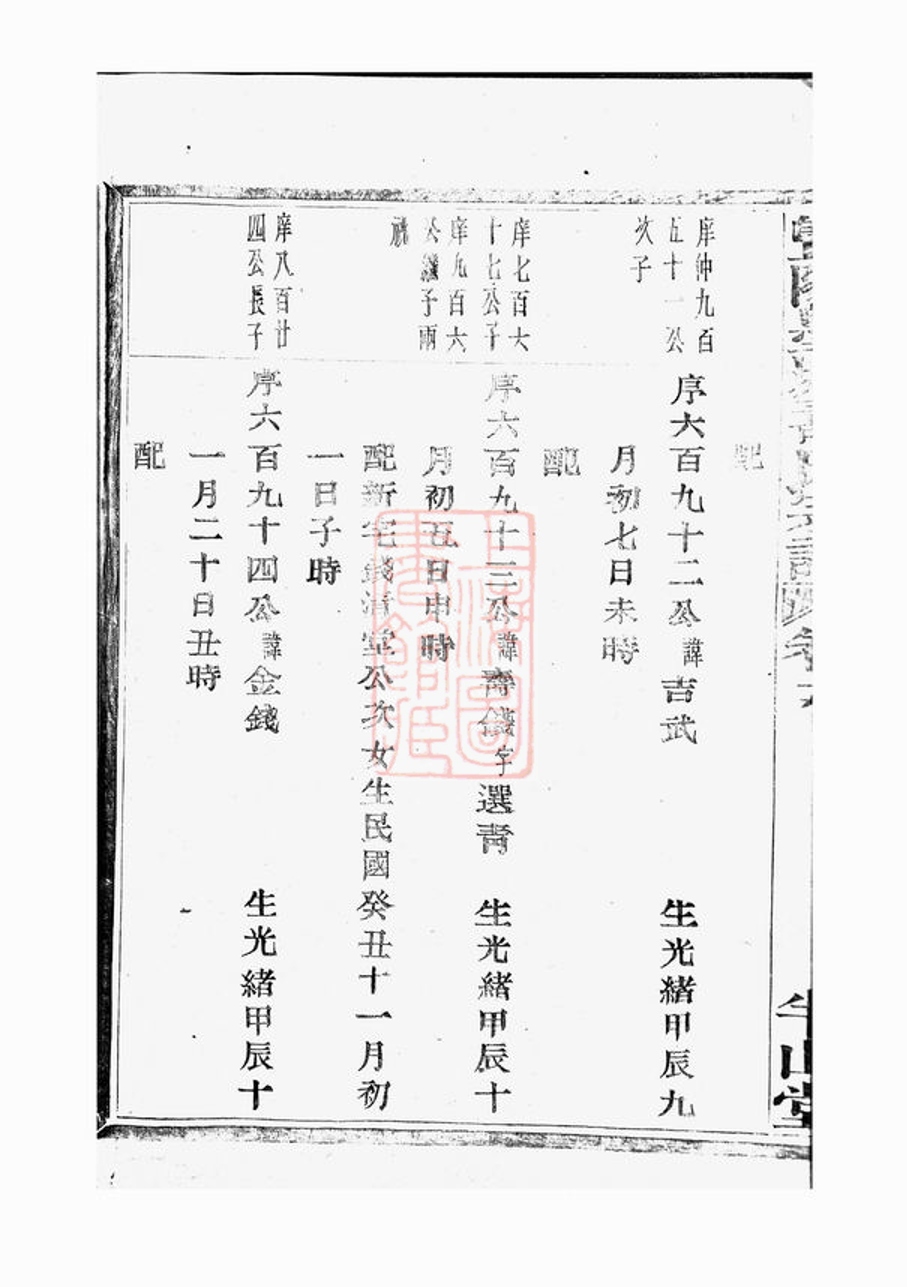 配
庠仲九百
五十一公
次子
序六百九十二公諱吉武 生光緒甲辰九
月初七日未時
配
庠七百六
十七公子
庠九百六
公繼子兩
祧
序六百九十三公諱壽錢字選青 生光緒甲辰十
月初五日申時
配新宅錢清堂公次女生民國癸丑十一月初
一日子時
庠八百廿
四公長子
序六百九十四公諱金錢 生光緒甲辰十
一月二十日丑時
配
上海圖書館藏